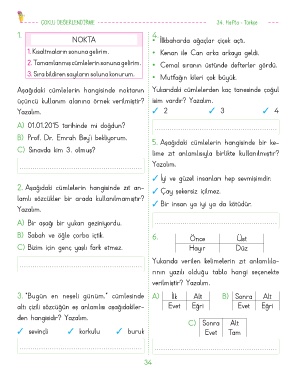 ÇOKLU DEĞERLENDİRME
24. Hafta - Türkçe
1.
NOKTA
1. Kısaltmaların sonuna gelirim.
2. Tamamlanmış cümlelerin sonuna gelirim.
3. Sıra bildiren sayıların soluna konurum.
Aşağıdaki cümlelerin hangisinde noktanın
üçüncü kullanım alanına örnek verilmiştir?
Yazalım.
A) 01.01.2015 tarihinde mi doğdun?
B) Prof. Dr. Emrah Bey'i bekliyorum.
C) Sınavda kim 3. olmuş?
2. Aşağıdaki cümlelerin hangisinde zıt an-
lamlı sözcükler bir arada kullanılmamıştır?
Yazalım.
A) Bir aşağı bir yukarı geziniyordu.
B) Sabah ve öğle çorba içtik.
C) Bizim için genç yaşlı fark etmez.
3. "Bugün en neşeli günüm." cümlesinde
altı çizili sözcüğün eş anlamlısı aşağıdakiler-
den hangisidir? Yazalım.
✓ sevinçli ✓ korkulu ✓ buruk
4.
• İlkbaharda ağaçlar çiçek açtı.
• Kenan ile Can arka arkaya geldi.
• Cemal sıranın üstünde defterler gördü.
• Mutfağın kileri çok büyük.
Yukarıdaki cümlelerden kaç tanesinde çoğul
isim vardır? Yazalım.
✓ 2 ✓ 3 ✓ 4
5. Aşağıdaki cümlelerin hangisinde bir ke-
lime zıt anlamlısıyla birlikte kullanılmıştır?
Yazalım.
✓ İyi ve güzel insanları hep sevmişimdir.
✓ Çay şekersiz içilmez.
✓ Bir insan ya iyi ya da kötüdür.
6.
Önce Üst
Hayır Düz
Yukarıda verilen kelimelerin zıt anlamlıla-
rının yazılı olduğu tablo hangi seçenekte
verilmiştir? Yazalım.
A) İlk Alt B) Sonra Alt
Evet Eğri Evet Eğri
C) Sonra Alt
Evet Tam
34